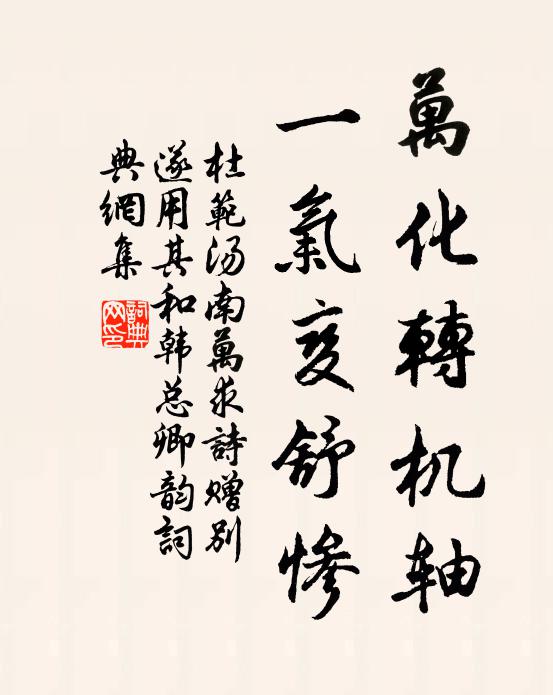 萬化轉机轴
一氣变舒惨
杜範汤南萬求詩赠别
遂用其和韩总卿韵詞
典網集
詞典網印